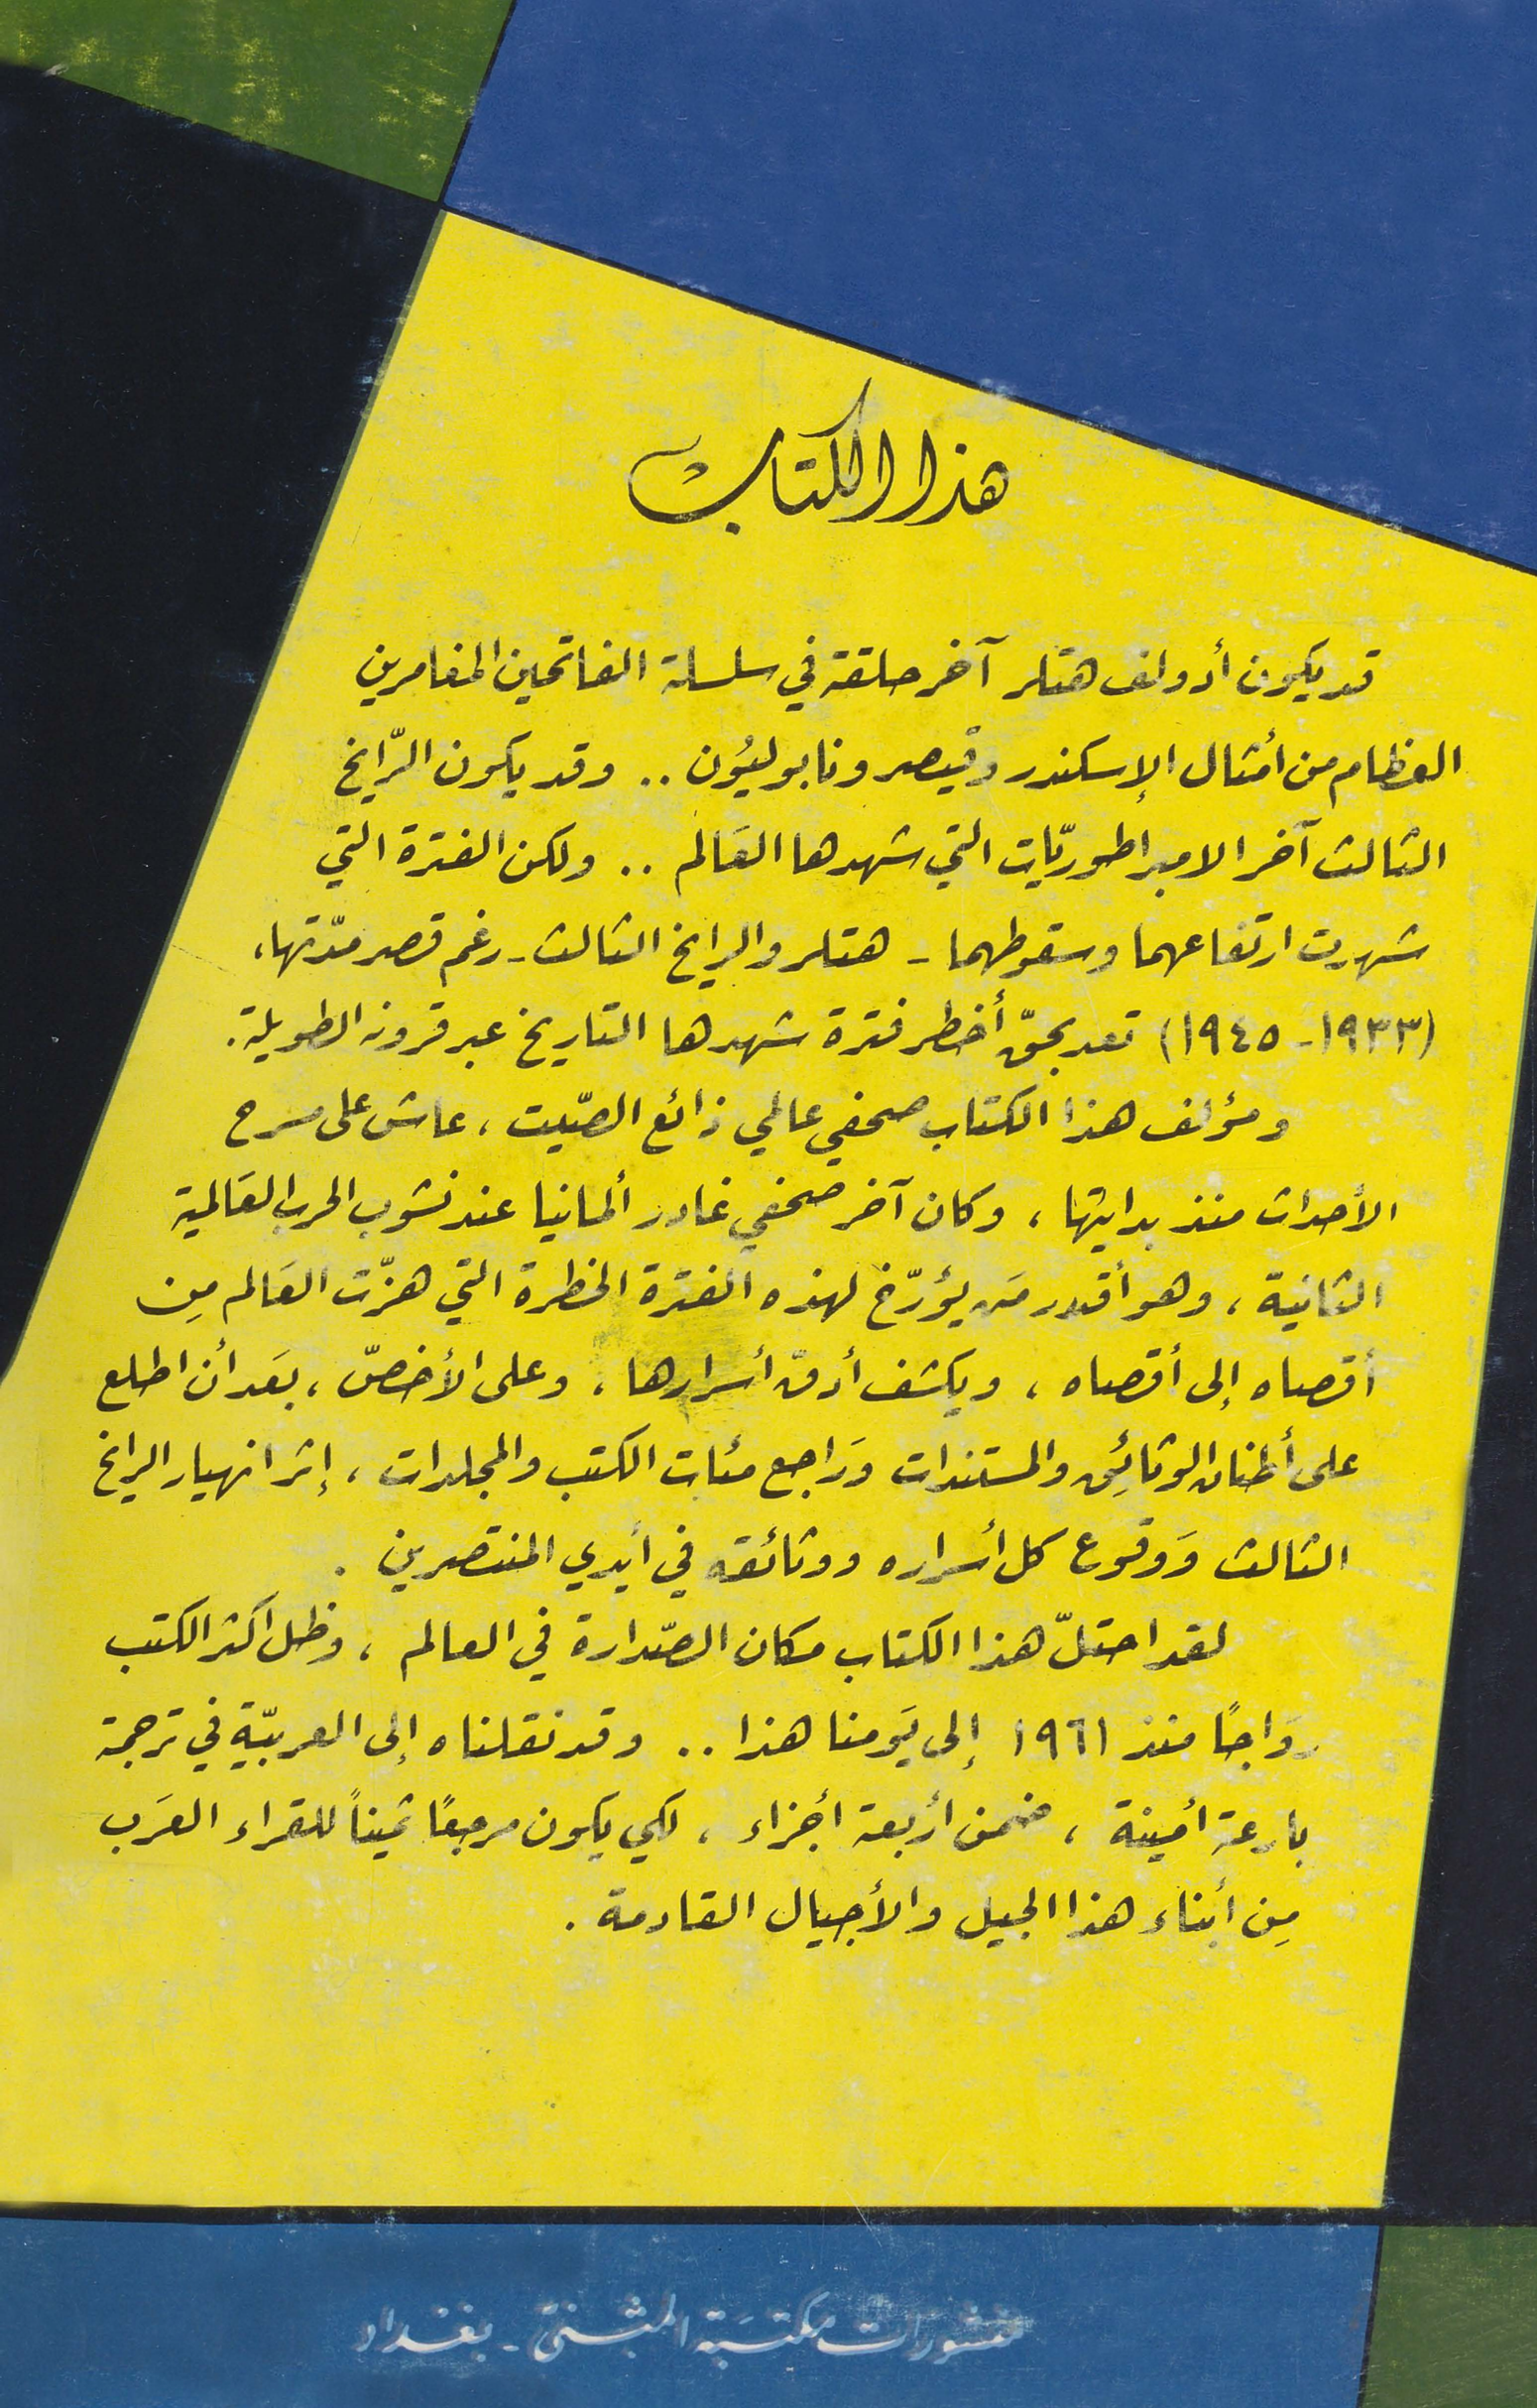 هذا الكتاب
قد يكون أدولف هتلر آخر حلقة في سلسلة الفاتحين المغامرين
العظام من أمثال الإسكندر وقيصر ونابوليُون .. وقد يكون الرّايخ
الثالث آخر الامبراطوريّات التي شهدها العَالم .. ولكن الفترة التي
شهدت ارتفاعهما وسقوطهما - هتلر والرايخ الثالث - رغم قصر مدّتها،
(١٩٣٣-١٩٤٥) تعد بحقّ أخطر فترة شهدها التاريخ عبر قرونه الطويلة.
ومؤلف هذا الكتاب صحفي عالمي ذائع الصّيت، عاش على مسرح
الأحداث منذ بدايتها، وكان آخر صحفي غادر ألمانيا عند نشوب الحرب العَالمية
الثانية، وهو أقدر مَن يؤرّخ لهذه الفترة الخطرة التي هزّت العَالم مِن
أقصاه إلى أقصاه، ويكشف أدقّ أسرارها، وعلى الأخصّ، بعَد أن اطلع
على أطنان الوثائِق والمستندات وَراجع مئات الكتب والمجلدات، إثر انهيار الرايخ
الثالث وَوقوع كل أسراره ووثائقه في أيدي المنتصرين .
لقد احتلّ هذا الكتاب مكان الصّدارة في العالم، وظل اكثر الكتب
روَاجًا منذ ١٩٦١ إلى يَومنا هذا .. وقد نقلناه إلى العربيّة في ترجمة
بارعة أمينة، ضمن أربعة أجزاء، لكي يكون مرجعًا ثميناً للقراء العرَب
مِن أبناء هذا الجيل والأجيال القادمة .
منشورات مكتبَة المثنى - بغداد